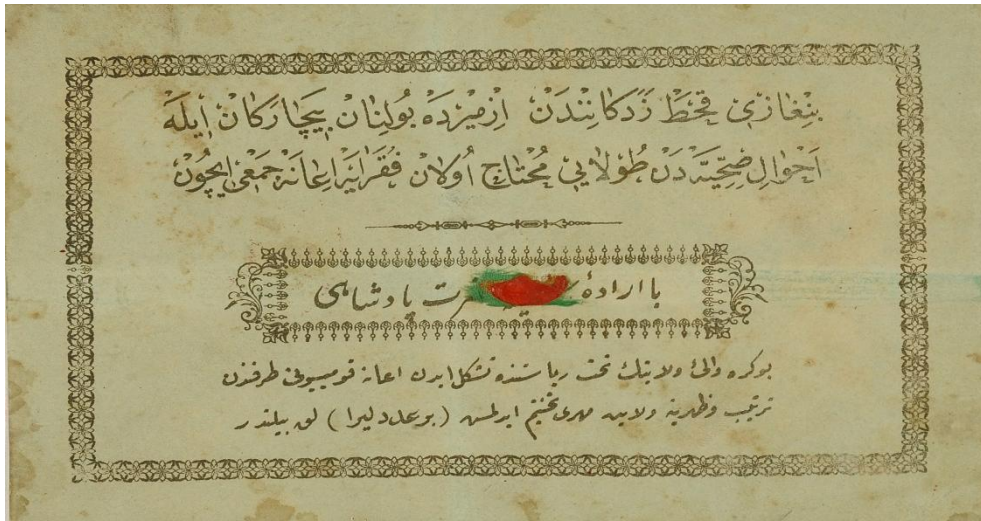 بنغازی قحط زدكانندن ازمیرده بولنان بیچاركان ایله
احوال صحیه‌دن طولایی محتاج اولان فقرایه اعانه جمعی ایچون
با ارادهٔ ت پادشاهی
بوكره والئ ولایتك تحت ریاستنده تشكل ایدن اعانه قومیسیونی طرفندن
ترتیب و ظهرینه ولایت مهری تختیم ایدلمش (بر عدد لیرا) لق بیلتدر